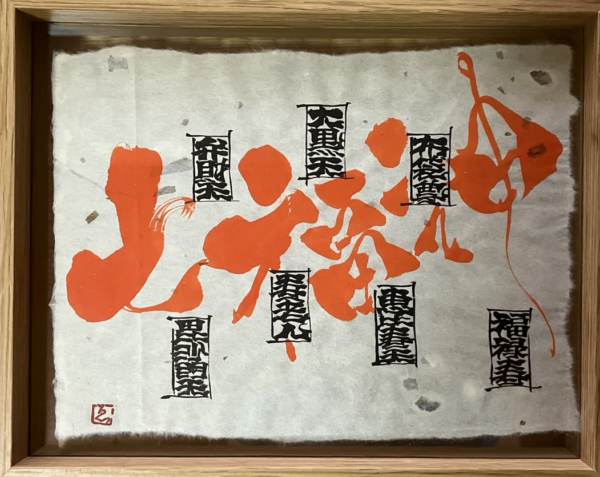 七福神
弁財天
大黒天
布袋尊
毘沙門天
寿老人
恵比寿天
福禄寿